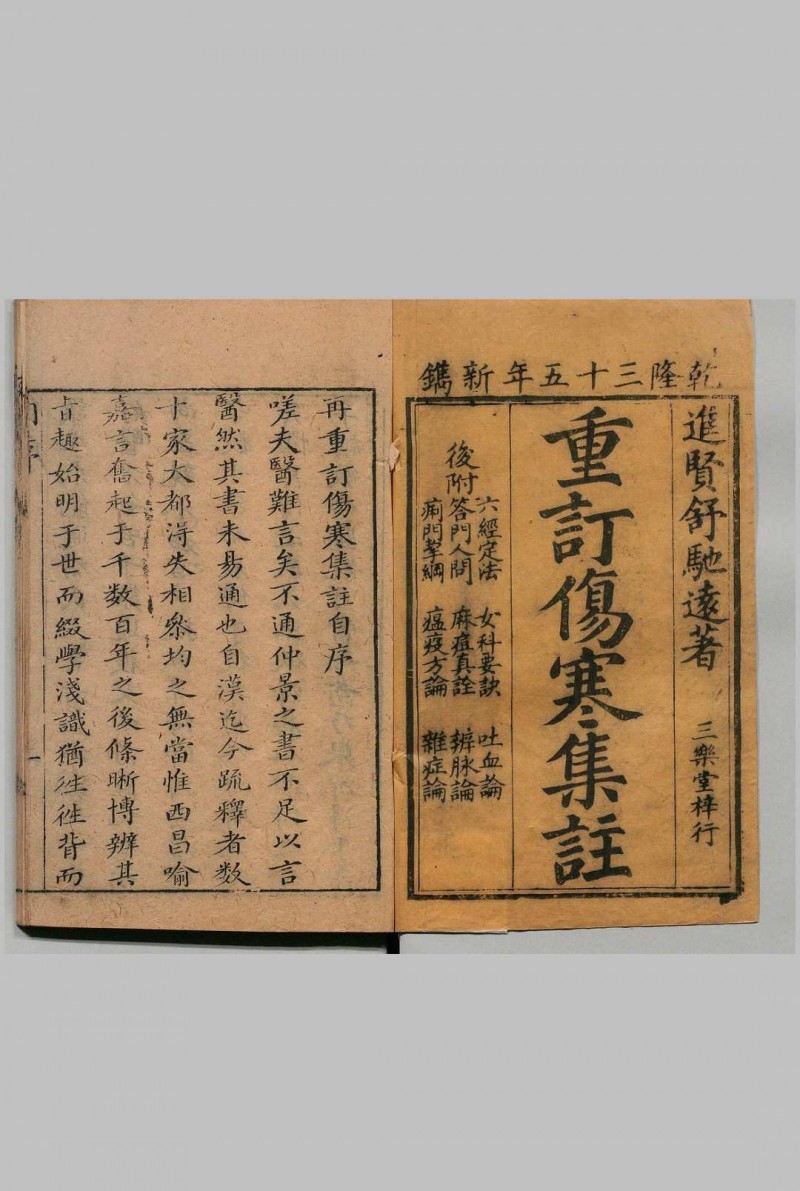 乾隆三十五年新鐫
進賢舒馳遠著
三樂堂梓行
重訂傷寒集註
後附
六經定法 女科要訣 吐血論
答門人問 麻痘真詮 辨脉論
痢門挈綱 瘟疫方論 雜症論
再重訂傷寒集註自序
嗟夫醫難言矣不通仲景之書不足以言
醫然其書未易通也自漢迄今疏釋者数
十家大都得失相叅均之無當惟西昌喻
嘉言奮起于千数百年之後條晰博辨其
㫖趣始明于世而綴學淺識猶徃徃背而
自序
一